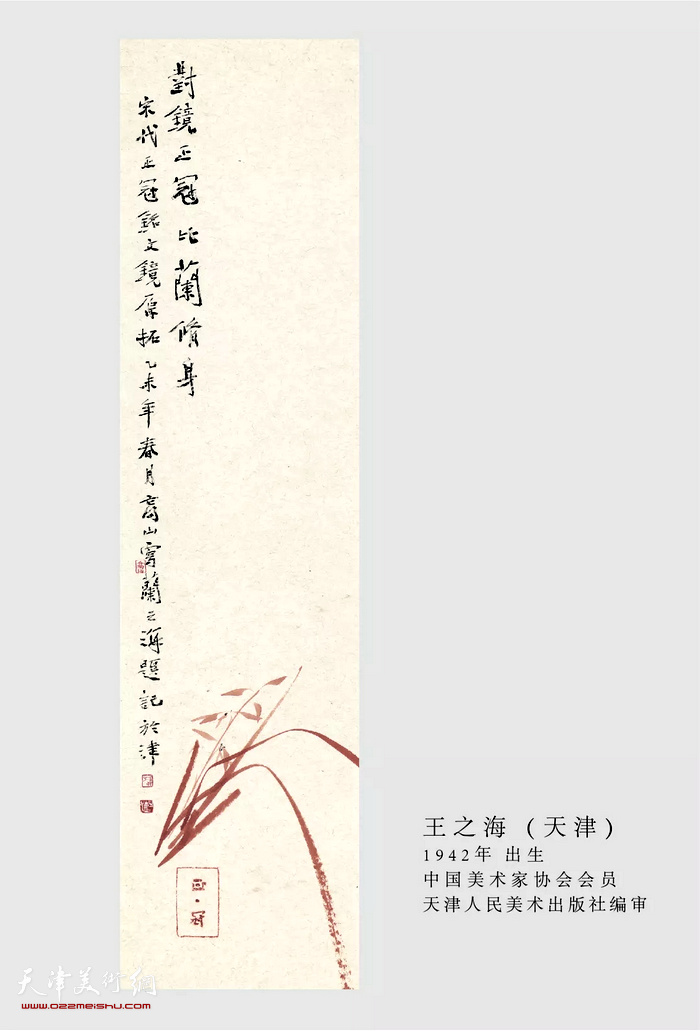 對鏡正冠比蘭脩身
宋代正冠銘文鏡原拓乙未年春月高山寫蘭之海題記於津
王之海（天津）
1942年 出生
中国美术家协会会员
天津人民美术出版社编审
天津美術網
www.022meishu.com